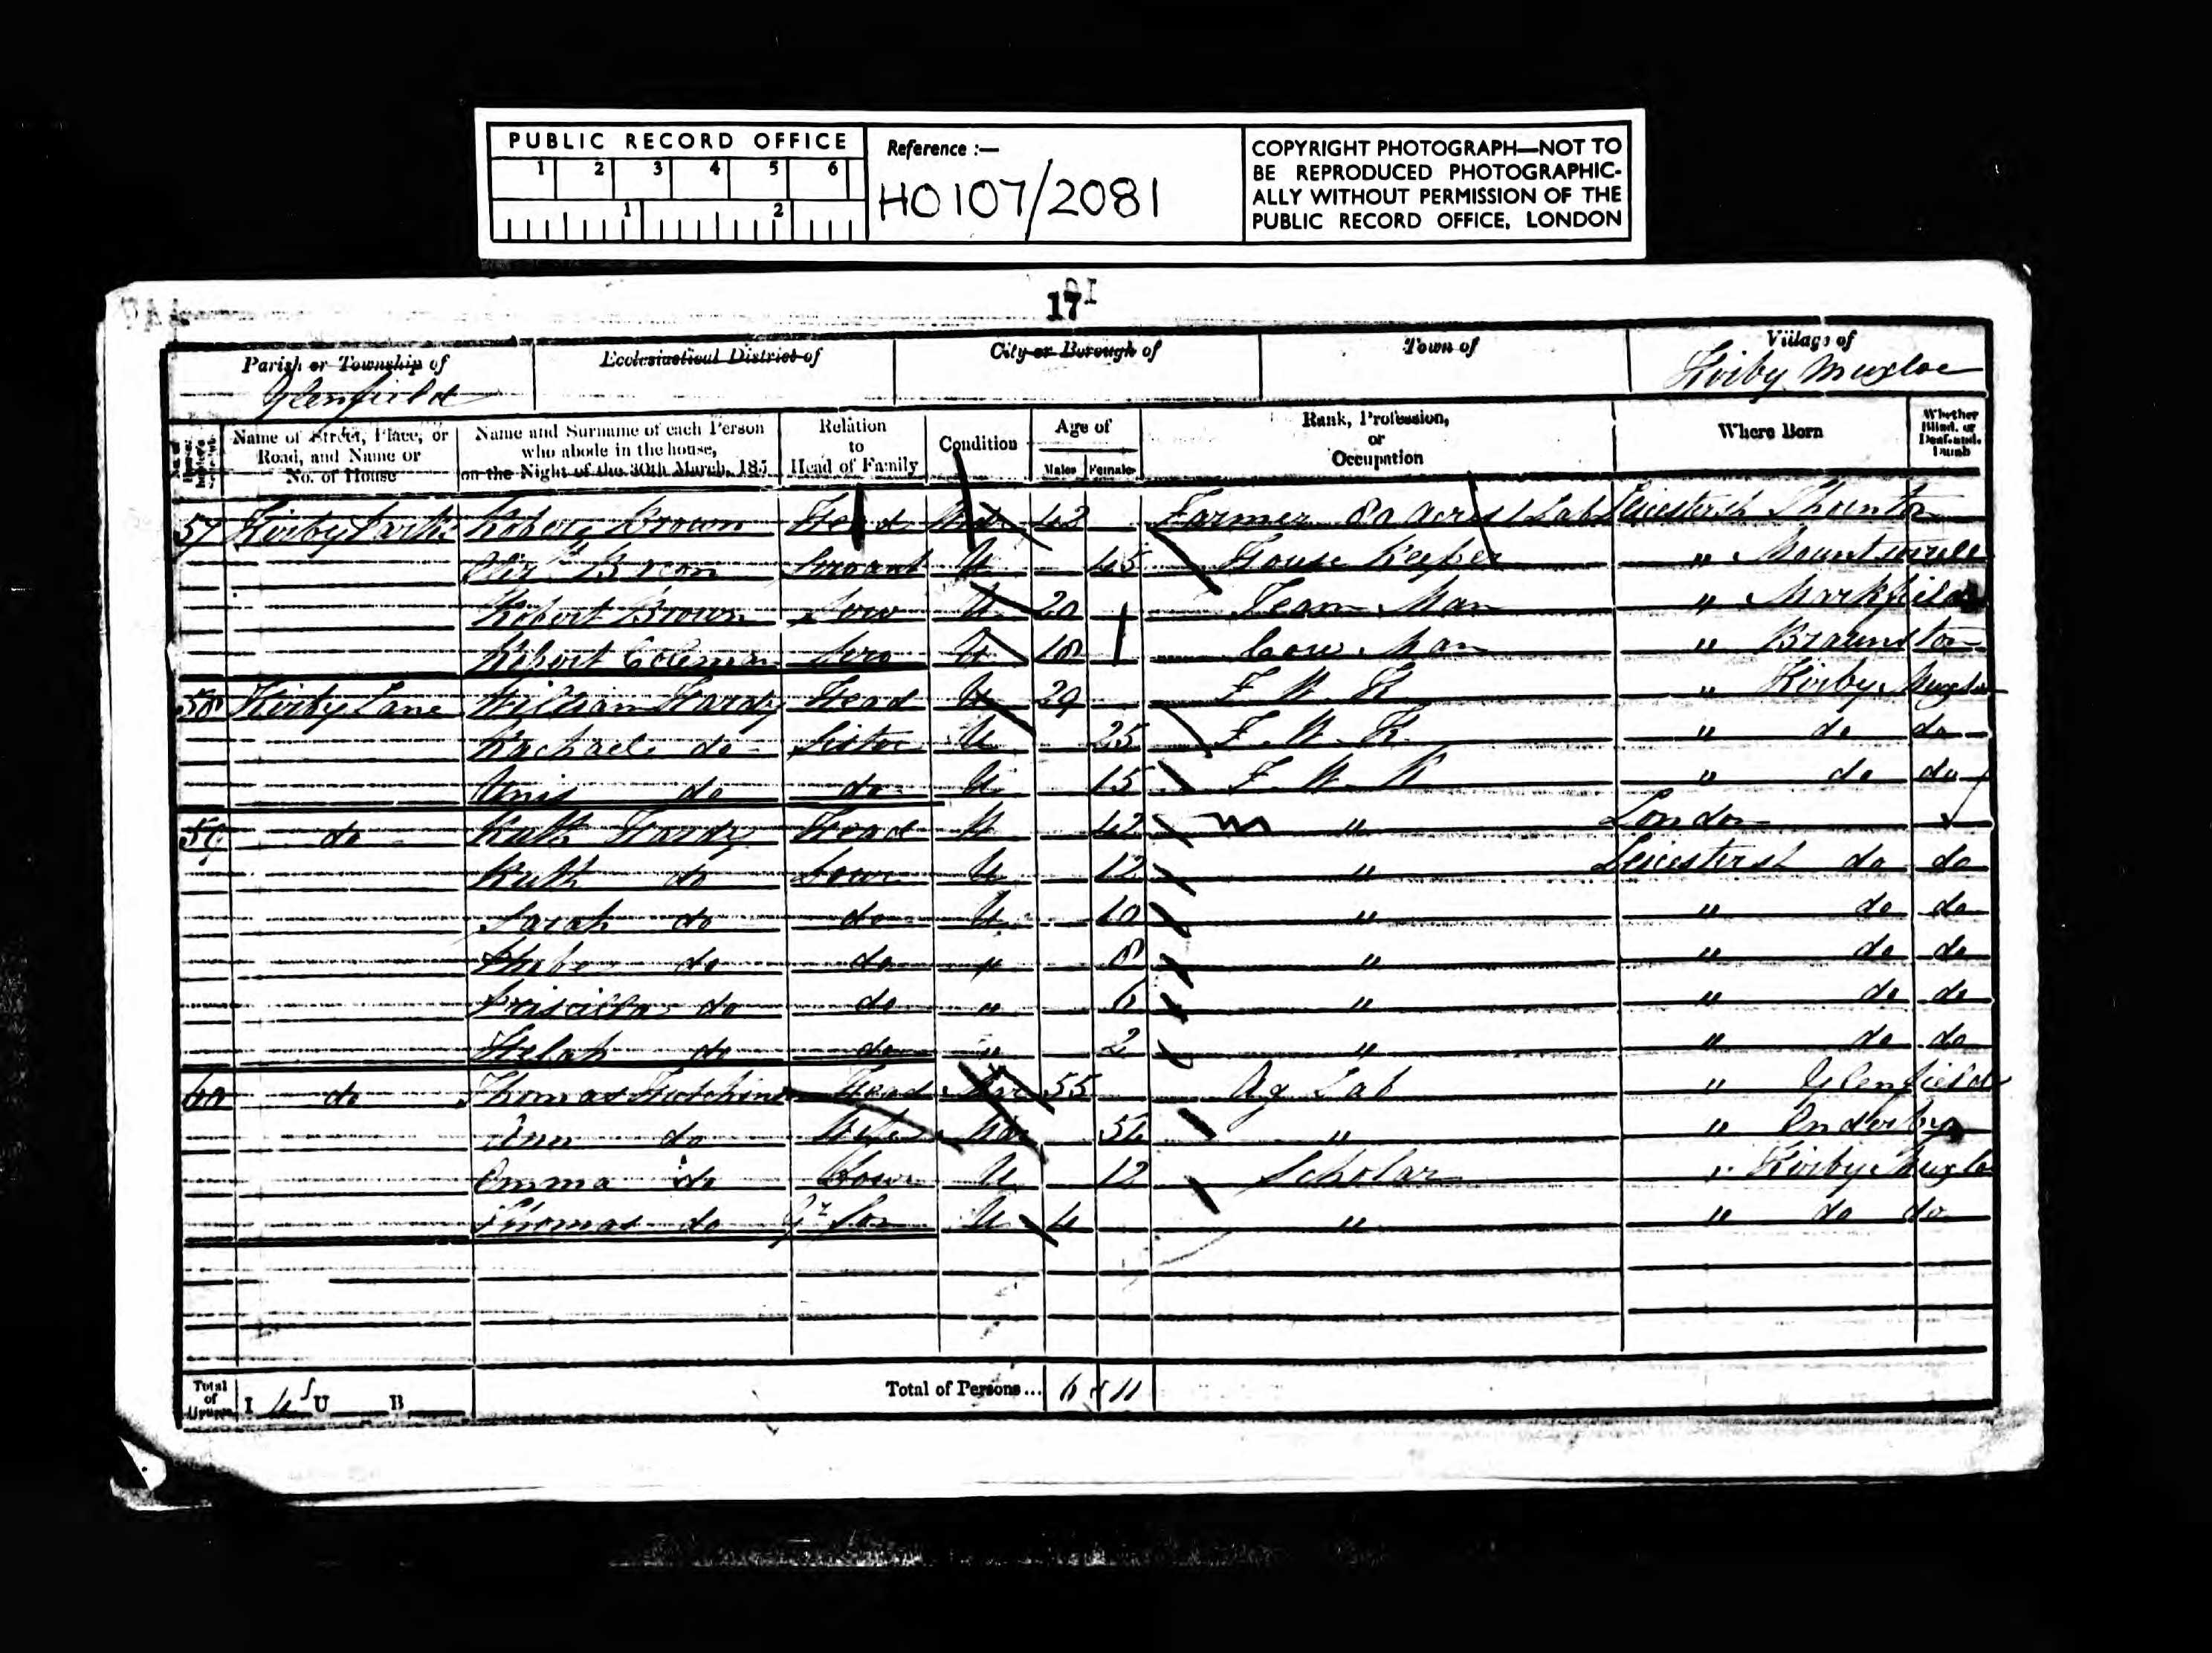 PUBLIC RECORD OFFICE
1 2 3 4 5 6
1 2
Reference :—
HO 107/2081
COPYRIGHT PHOTOGRAPH—NOT TO
BE REPRODUCED PHOTOGRAPHIC-
ALLY WITHOUT PERMISSION OF THE
PUBLIC RECORD OFFICE, LONDON
17
Parish or Township of Ecclesiastical District of City or Borough of Town of Village of
Glenfield Kirby Muxloe
Name of Street, Place, or Road, and Name or No. of House
Name and Surname of each Person who abode in the house, on the Night of the 30th March, 185
Relation to Head of Family
Condition
Age of
Males Females
Rank, Profession, or Occupation
Where Born
Whether Blind, or Deaf-and-Dumb
57 Kirby Parks Robert Brown Head 42 Farmer 80 Acres 1 Lab Leicestersh Thornton
Servant U 45 House Keeper "
Robert Brown U 20 Team Man " Markfield
Robert Coleman U 18 Cow Man " Braunston
58 Kirby Lane William Hardy Head U 29 F. W. K " Kirby Muxloe
Rachael do Sister U 25 F. W. K " do do
Unis do do U 15 F. W. K " do do
59 do Ruth Hardy Head 42 " London
Ruth do U 12 " Leicestersh do do
Sarah do do U 10 " " do do
Phebe do do " 8 " " do do
Priscilla do do " 6 " " do do
Helah do do " 2 " " do do
60 do Thomas Hutchins Head Mar 55 Ag Lab " Glenfield
Ann do Wife Mar " " Enderby
Emma do U 12 Scholar " Kirby Muxloe
Thomas do Gr Son U 4 " " do do
Total of I 4 U B Total of Persons... 6 11